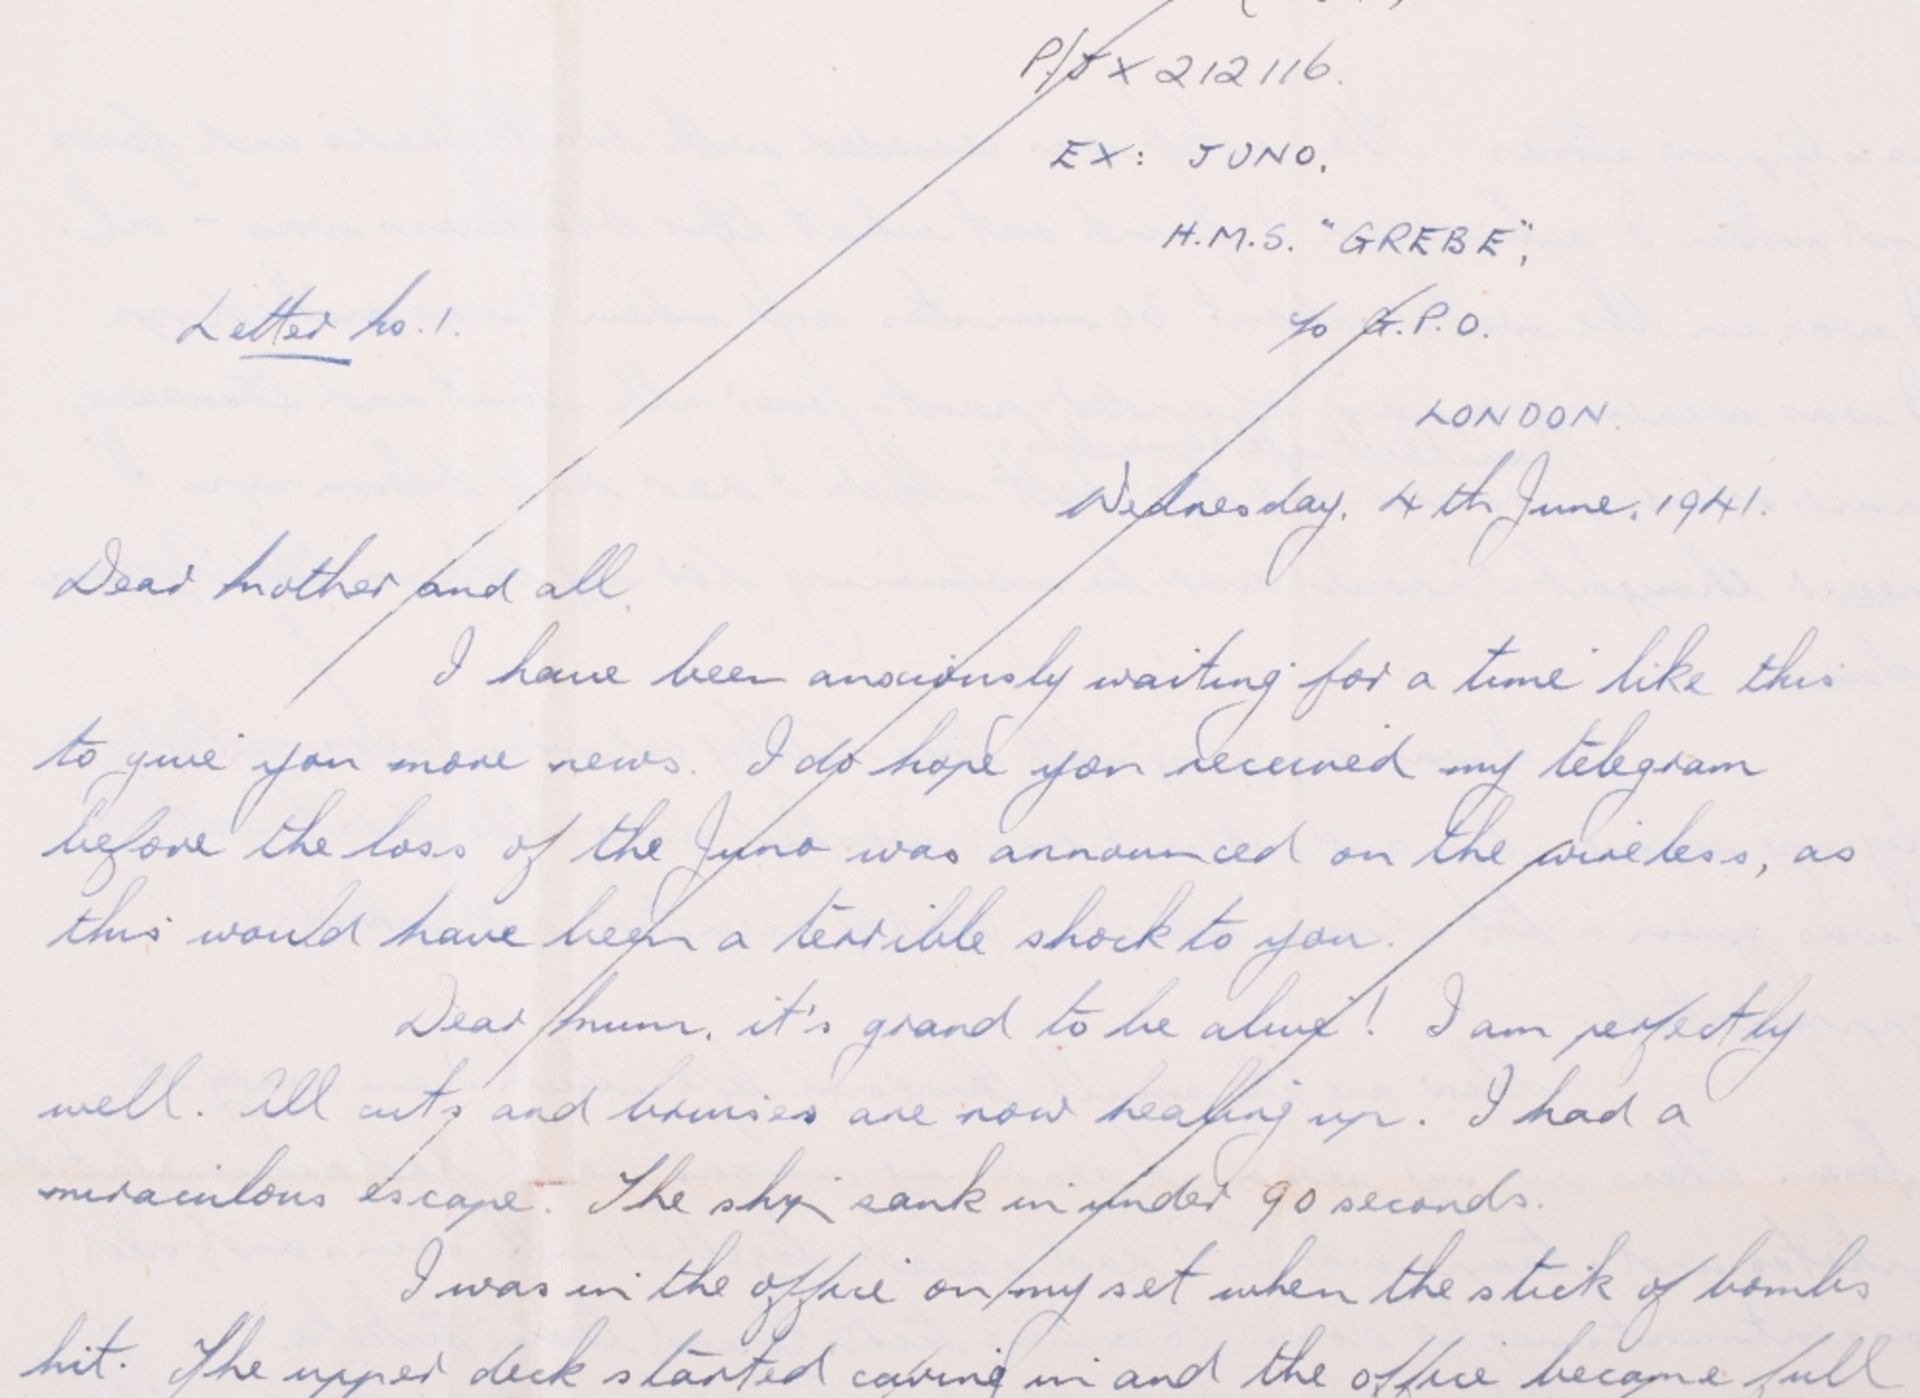 P/JX 212116.
EX: JUNO,
H.M.S. "GREBE",
Letter No. 1.
c/o G.P.O.
LONDON.
Wednesday, 4th June, 1941.
Dear Mother and all,
I have been anxiously waiting for a time like this
to give you more news. I do hope you received my telegram
before the loss of the Juno was announced on the wireless, as
this would have been a terrible shock to you.
Dear Mum, it's grand to be alive! I am perfectly
well. All cuts and bruises are now healing up. I had a
miraculous escape. The ship sank in under 90 seconds.
I was in the office on my set when the stick of bombs
hit. The upper deck started caving in and the office became full